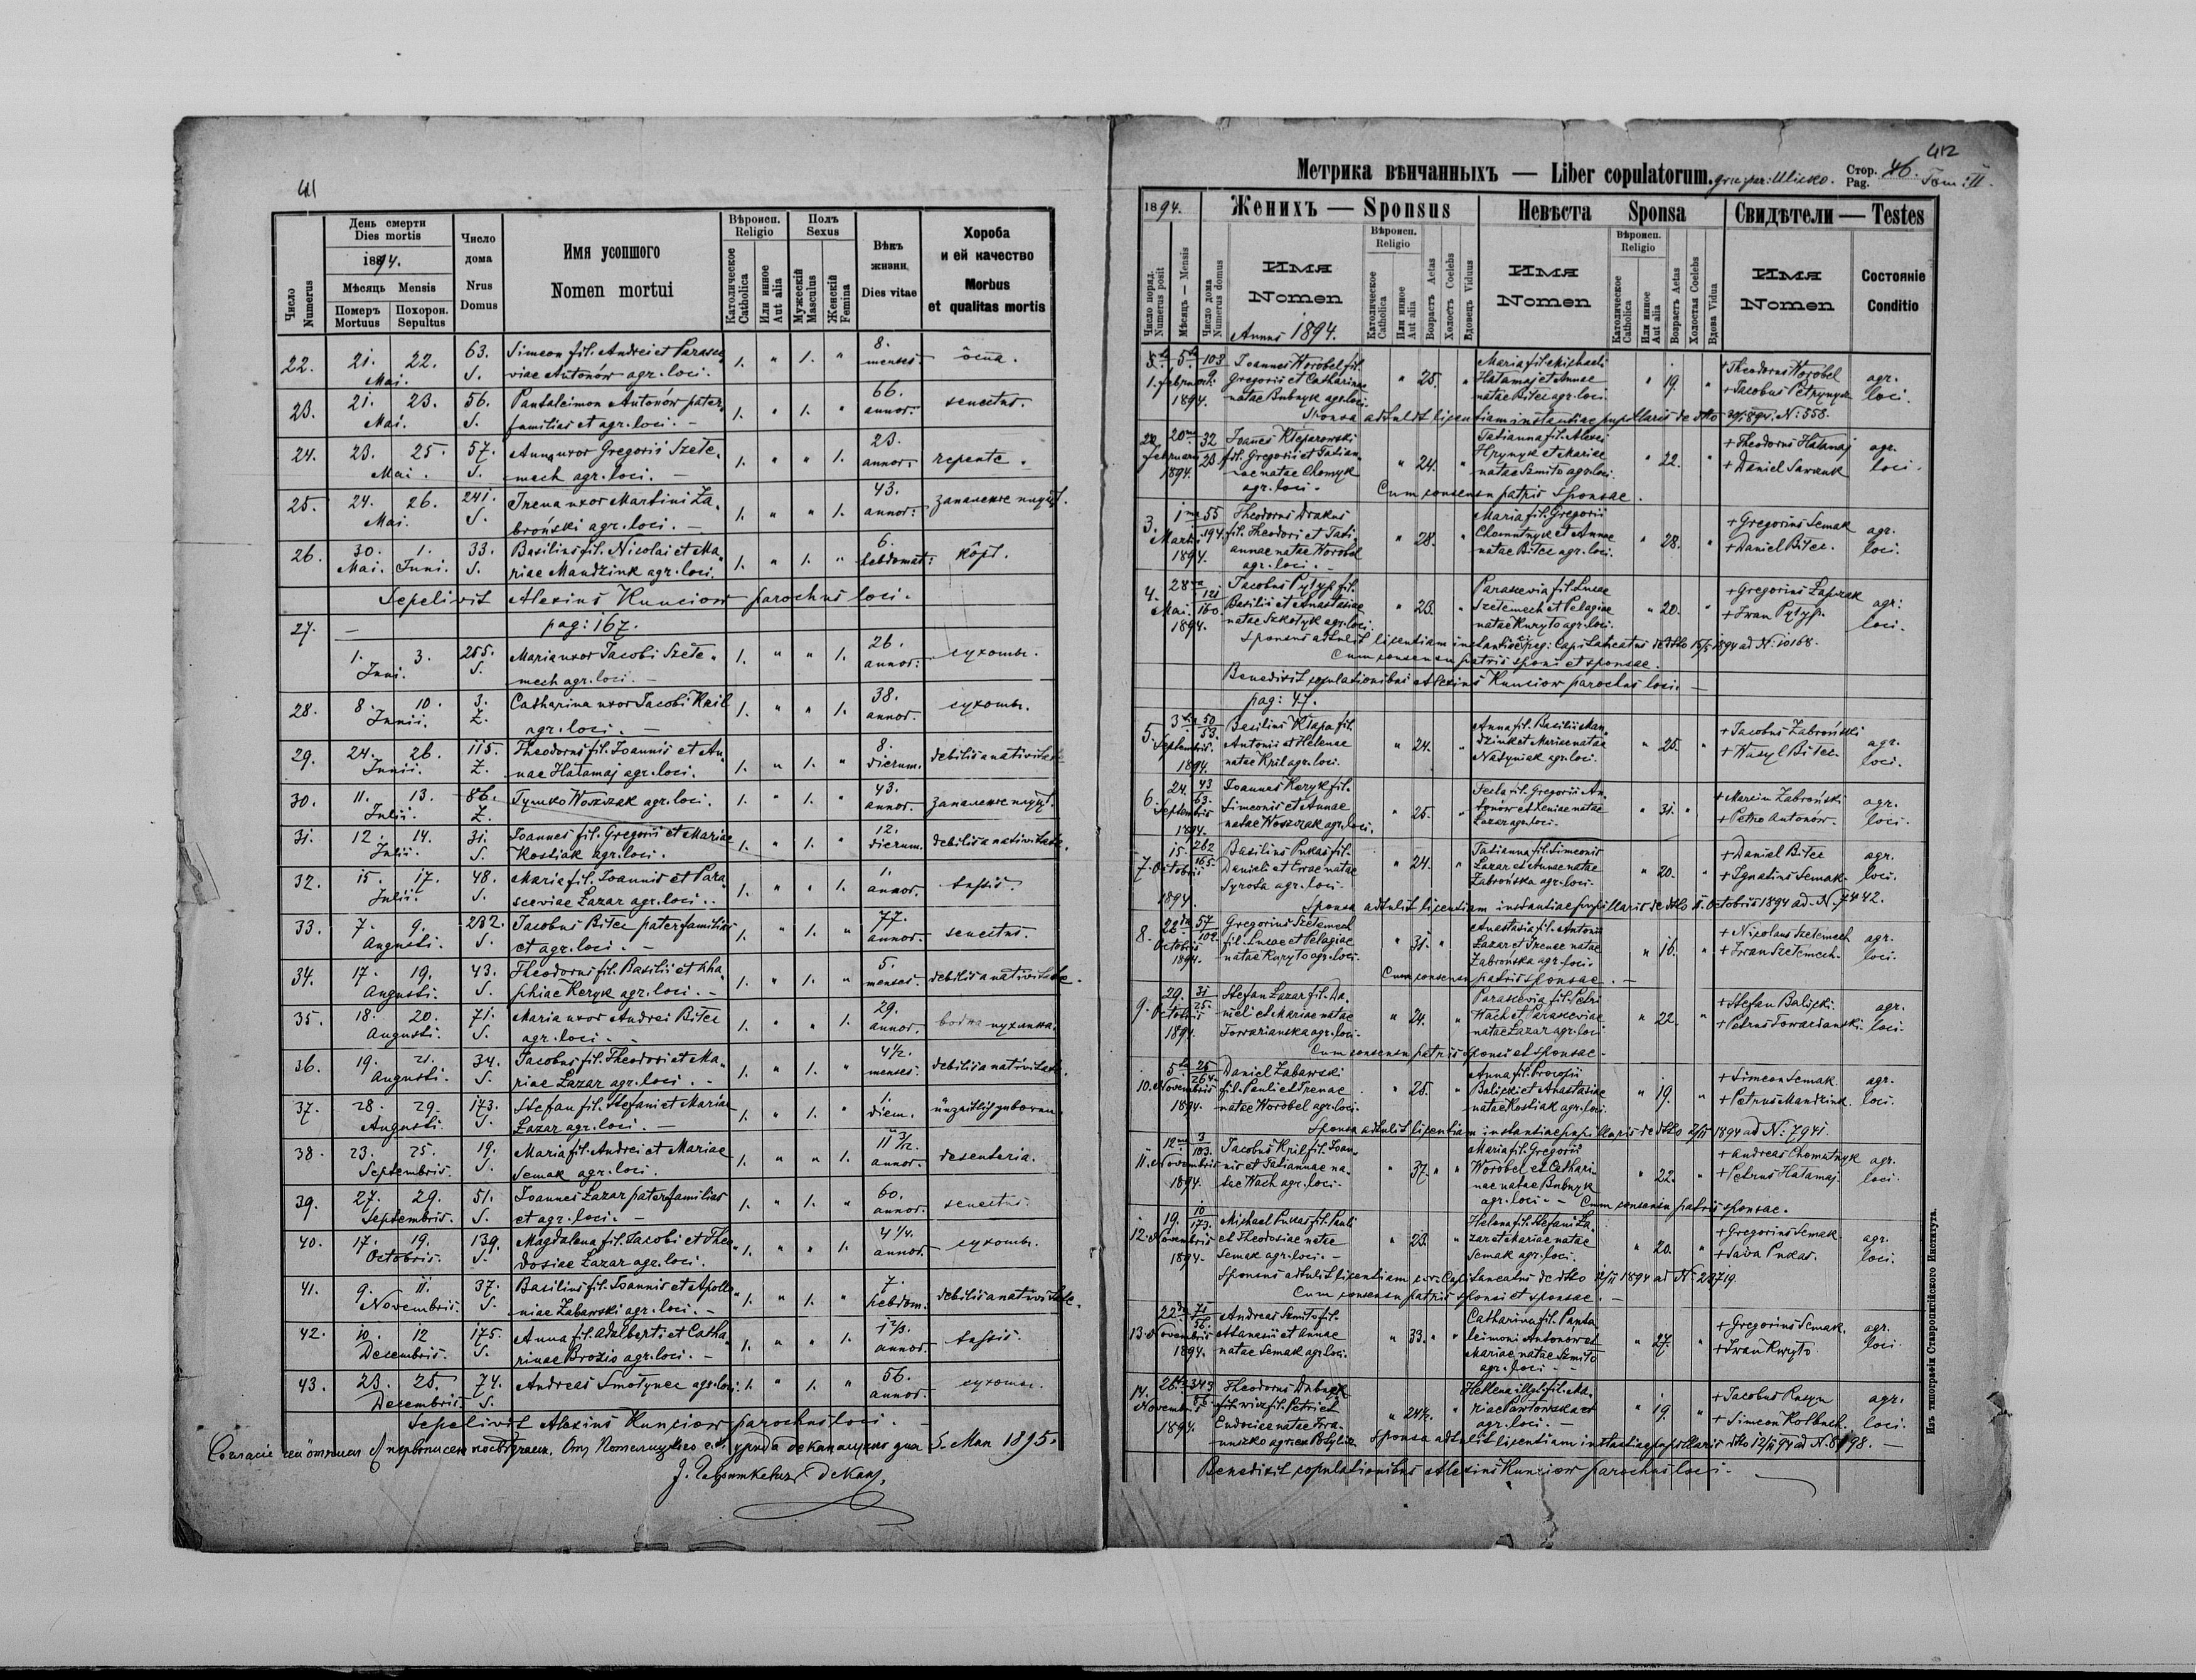 411
День смерти
Dies mortis
1894.
Мѣсяць Mensis
Число
Numerus
Померъ
Mortuus
Похорон.
Sepultus
Число
дома
Nrus
Domus
Имя усопшого
Nomen mortui
Вѣроисп.
Religio
Католическое
Catholica
Или инное
Aut alia
Полъ
Sexus
Мужескій
Masculus
Женскій
Femina
Вѣкъ
жизни
Dies vitae
Хороба
и ей качество
Morbus
et qualitas mortis
22. 21. 22. Mai. 63. S. Simeon fil. Andrei et Parasce„ 1. „ 1. „ 8. menses.
viae Antonów agr. loci.
23. 21. 23. Mai. 56. S. Pantaleimon Antonów pater„ 1. „ 1. „ 66. annor. senectus.
familias et agr. loci. —
24. 23. 25. Mai. 57. S. Anna uxor Gregorii Szete„ 1. „ „ 1. 23. annor. repente.
mech agr. loci.
25. 24. 26. Mai. 241. S. Irena uxor Martini Za„ 1. „ „ 1. 43. annor:
broński agr. loci. —
26. 30. Mai. 1. Juni. 33. S. Basilius fil. Nicolai et Ma„ 1. „ 1. „ 6. hebdomat:
riae Mandziuk agr. loci.
Sepelivit Alexius Kunciow parochus loci.
27. — pag: 167.
1. 3. Juni. 255. S. Maria uxor Jacobi Szete„ 1. „ „ 1. 26. annor: сухоты.
mech agr. loci. —
28. 8. 10. Junii. 3. Z. Catharina uxor Jacobi Kril 1. „ „ 1. 38. annor. сухоты.
agr. loci. —
29. 24. 26. Junii. 115. Z. Theodorus fil. Joannis et An„ 1. „ 1. „ 8. dierum. debilis a nativitate
nae Hatamaj agr. loci.
30. 11. 13. Julii. 86. Z. Tymko Woszczak agr. loci. 1. „ 1. „ 43. annor.
31. 12. 14. Julii. 31. S. Joannes fil. Gregorii et Mariae 1. „ 1. „ 12. dierum. debilis a nativitate.
Kostiak agr. loci.
32. 15. 17. Julii. 48. S. Maria fil. Joannis et Para„ 1. „ „ 1. 1. annor. tussis.
sceviae Lazar agr. loci..
33. 7. 9. Augusti. 232. S. Jacobus Bitec paterfamilias 1. „ 1. „ 77. annor. senectus.
et agr. loci. —
34. 17. 19. Augusti. 43. S. Theodorus fil. Basilii et 1. „ 1. „ 5. menses. debilis a nativitate.
Keryk agr. loci. —
35. 18. 20. Augusti. 71. S. Maria uxor Andrei Bitec 1. „ „ 1. 29. annor.
agr. loci. —
36. 19. 21. Augusti. 34. S. Jacobus fil. Theodori et Ma„ 1. „ 1. „ 4½. menses. debilis a nativitate.
riae Lazar agr. loci. —
37. 28. 29. Augusti. 173. S. Stefan fil. Stefani et Mariae 1. „ 1. „ 1. diem.
Lazar agr. loci. —
38. 23. 25. Septembris. 19. S. Maria fil. Andrei et Mariae 1. „ „ 1. annor. desenteria.
Semak agr. loci.
39. 27. 29. Septembris. 51. S. Joannes Lazar paterfamilias 1. „ 1. „ 60. annor. senectus.
et agr. loci. —
40. 17. 19. Octobris. 139. S. Magdalena fil. Jacobi et Theo„ 1. „ „ 1. 4¼. annor. сухоты.
dosiae Lazar agr. loci.
41. 9. 11. Novembris. 37. S. Basilius fil. Joannis et Apollo„ 1. „ 1. „ 7. hebdom. debilis a nativitate.
niae Zabawski agr. loci. —
42. 10. 12 Decembris. 175. S. Anna fil. Adalberti et Catha„ 1. „ „ 1. annor. tussis.
rinae Brozio agr. loci. —
43. 23. 25. Decembris. 74. S. Andreas Smolynec agr. loci. 1. „ 1. „ 56. annor. сухоты.
Sepelivit Alexius Kunciow parochus loci. —
5. Мая 1895.
декан.
412
Метрика вѣнчанныхъ — Liber copulatorum. Стор. Pag. 46. Tom: II.
1894. Женихъ — Sponsus Невѣста Sponsa Свидѣтели — Testes
Число поряд.
Numerus posit
Мѣсяць — Mensis
Число дома
Numerus domus
Имя
Nomen
Вѣроисп.
Religio
Католическое
Catholica
Или инное
Aut alia
Возрастъ Aetas
Холостъ Coelebs
Вдовецъ Viduus
Имя
Nomen
Вѣроисп.
Religio
Католическое
Catholica
Или инное
Aut alia
Возрастъ Aetas
Холостая Coelebs
Вдова Vidua
Имя
Nomen
Состояніе
Conditio
Annus 1894.
1. 5ta Februarii 1894. 103 9 Joannes Worobel fil. Gregorii et Catharinae natae Bubnyk agr. loci „ 25. „ Maria fil. Michaeli Hatamaj et Annae natae Bitec agr. loci „ 19. „ + Theodorus Worobel + Jacobus Petrynyk agr. loci.
Sponsa adtulit licentiam instantiae pupillaris de dtto N. 558.
2. 20ma Februarii 1894. 32 23 Joannes Kleparowski fil. Gregorii et Tatian„ nae natae Chomyk agr. loci. „ 24. „ Tatianna fil. Alexei Hrynyk et Mariae natae Szmito agr. loci. „ 22. „ + Theodorus Hatamaj + Daniel Sawczuk agr. loci.
Cum consensu patris sponsae.
3. 1ma Martii 1894. 55 194. Theodorus Drakus fil. Theodori et Tati„ annae natae Worobel agr. loci. — „ 28. „ Maria fil. Gregorii Chomutnyk et Annae natae Bitec agr. loci. „ 28. „ + Gregorius Semak + Daniel Bitec. agr. loci.
4. 28va Mai. 1894. 121 160. Jacobus Pylyp fil. Basilii et Anastasiae natae Szkolyk agr. loci. „ 23. „ Parascevia fil. Lucae Szetemech et Pelagiae natae Kuryto agr. loci. „ 20. „ + Gregorius Lapczak + Iwan Pylyp. agr: loci.
Sponsus adtulit licentiam instantiae reg: Capitaneatus de dtto 1894 ad N: 10168.
Cum consensu patris sponsi et sponsae.
Benedixit copulationibus Alexius Kunciow parochus loci. —
pag: 47.
5. 3tia Septembris. 1894. 50 53. Basilius Klapa fil. Antonii et Helenae natae Kril agr. loci. „ 24. „ Anna fil. Basilii Man„ dziuk et Mariae natae Nasyniak agr. loci. „ 25. „ + Jacobus Zabroński + Wasyl Bitec. agr. loci.
6. 24. Septembris 1894. 43 63. Joannes Keryk fil. Simeonis et Annae natae Woszczak agr. loci. „ 25. „ Tecla fil. Gregorii An„ tonów et Xeniae natae Lazar agr. loci. „ 31. „ + Marcin Zabroński + Petro Antonów. agr. loci.
7. 15. Octobris 1894. 262 165. Basilius Pukas fil. Danieli et Evae natae Syrota agr. loci. „ 24. „ Tatianna fil. Simeonis Lazar et Annae natae Zabrońska agr. loci. „ 20. „ + Daniel Bitec + Ignatius Semak. agr. loci.
Sponsa adtulit licentiam instantiae pupillaris de dtto 11. Octobris 1894 ad. N. 7442.
8. 22da Octobris 1894. 57 102. Gregorius Szetemech fil. Lucae et Pelagiae natae Kuryto agr. loci. „ 31. „ Anastasia fil. Antonii Lazar et Irenae natae Zabrońska agr. loci „ 16. „ + Nicolaus Szetemech + Iwan Szetemech. agr. loci.
Cum consensu patris sponsae. —
9. 29. Octobris 1894. 31 25. Stefan Lazar fil. Da„ nieli et Mariae natae Towarianska agr. loci. „ 24. „ Parascevia fil. Petri Wach et Parasceviae natae Lazar agr. loci „ 22. „ + Stefan Balicki + Petrus Towardanski. agr. loci.
Cum consensu patris sponsi et sponsae.
10. 5ta Novembris 1894. 25 264. Daniel Zabawski fil. Pauli et Irenae natae Worobel agr. loci. „ 25. „ Anna fil. Procopii Balicki et Anastasiae natae Kostiak agr. loci. „ 19. „ + Simeon Semak. + Petrus Mandziuk. agr. loci.
Sponsa adtulit licentiam instantiae pupillaris de dtto 1894 ad N: 7941.
11. 12ma Novembris 1894. 3 183. Jacobus Kril fil. Joan„ nis et Tatiannae na„ tae Wach agr. loci. „ 37. „ „ Maria fil. Gregorii Worobel et Cathari„ nae natae Bubnyk agr. loci. — „ 22. „ + Andreas Chomutnyk + Petrus Hatamaj. agr. loci.
Cum consensu patris sponsae.
12. 19. Novembris 1894. 10 173. Michael Pukas fil. Pauli et Theodosiae natae Semak agr. loci. — „ 23. „ Helena fil. Stefani La„ zar et Mariae natae Semak agr. loci. „ 20. „ + Gregorius Semak. + Sawa Pukas. agr. loci.
Sponsus adtulit licentiam Capitaneatus de dtto 1894 ad N. 23719.
Cum consensu patris sponsi et sponsae. —
13. 22da Novembris 1894. 71 56. Andreas Szmito fil. Atanasii et Annae natae Semak agr. loci. „ 33. „ „ Catharina fil. Panta„ leimoni Antonow et Mariae natae Szmito agr. loci — „ 27. „ + Gregorius Semak. + Iwan Kuryto agr. loci
14. 26ta Novembr. 1894. 343 Theodorus Dubnyk fil. Petri et Eudociae natae Iwa„ nuszko agr. ex Potylicz „ 24½. „ Hellena illgt. fil. Ma„ riae Pawtowska et agr. loci. — „ 19. „ + Jacobus Rusyn + Simeon Kolbuch. agr. loci.
Sponsa adtulit licentiam instantiae pupillaris dtto 94 ad N. 8198. —
Benedixit copulationibus Alexius Kunciow parochus loci. —
Изъ типографіи Ставропигійского Института.